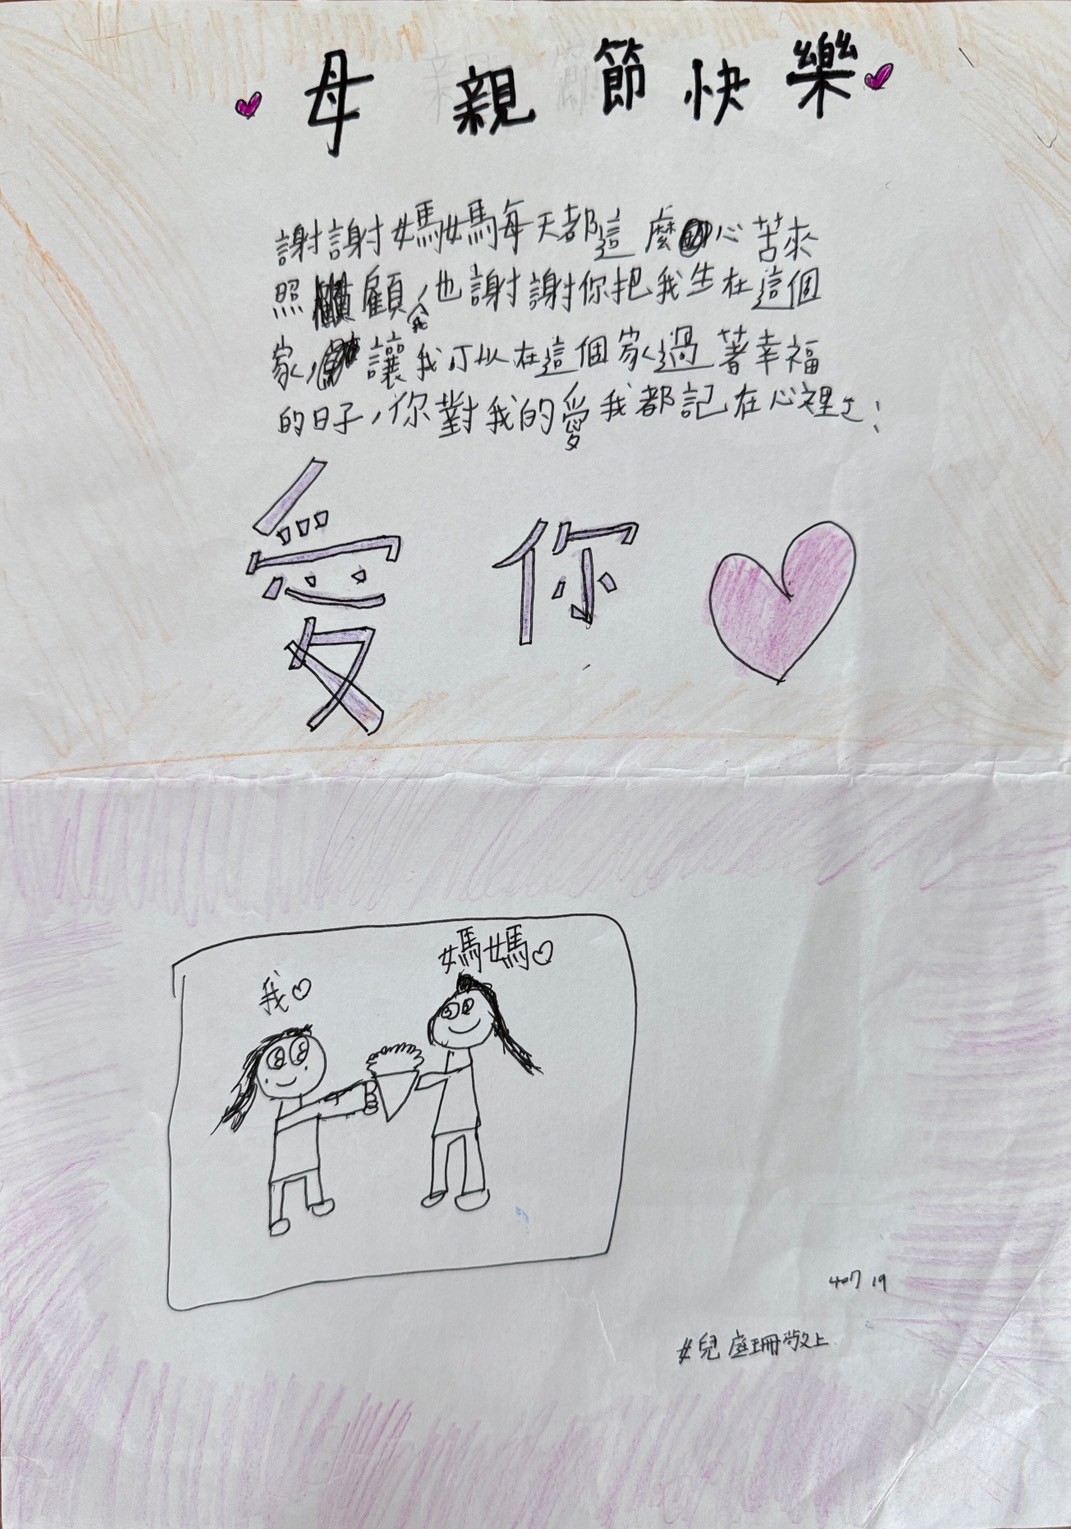 母親節快樂
謝謝媽媽每天都這麼心苦來
照顧我,也謝謝你把我生在這個
家,讓我可以在這個家過著幸福
的日子,你對我的愛我都記在心裡
愛你
媽媽♡
我♡
407 19
女兒庭珊敬上